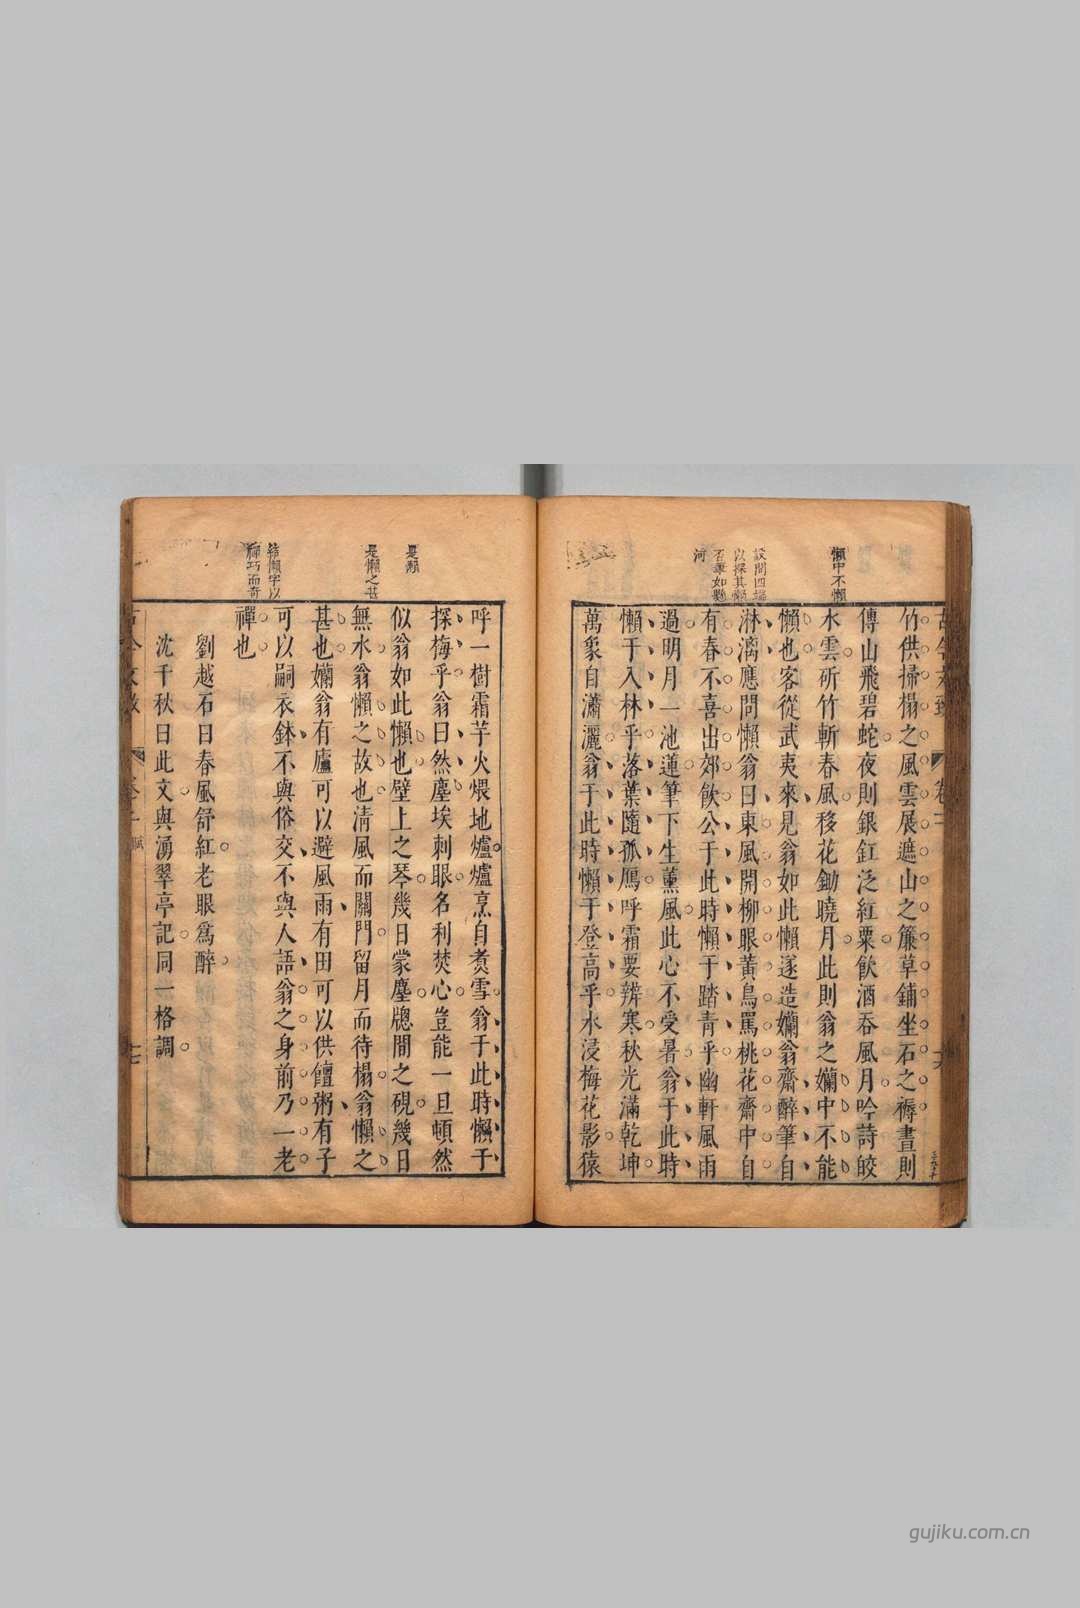 懶中不懶
設問四端
以探其懶
否筆如懸
河
竹供掃榻之風雲展遮山之簾草鋪坐石之褥晝則
傳山飛碧蛇夜則銀釭泛紅粟飲酒吞風月吟詩皎
水雲斫竹斬春風移花鋤曉月此則翁之嬾中不能
懶也客從武夷來見翁如此懶遂造嬾翁齋醉筆自
淋漓應問懶翁曰東風開柳眼黃鳥罵桃花齋中自
有春不喜出郊飲公于此時懶于踏青乎幽軒風雨
過明月一池蓮筆下生薰風此心不受暑翁于此時
懶于入林乎落葉隨孤鴈呼霜要辨寒秋光滿乾坤
萬象自瀟灑翁于此時懶于登高乎水浸梅花影猿
是懶
是懶之甚
結懶字以
禪巧而奇
呼一樹霜芋火煨地爐爐烹自煑雪翁于此時懶于
探梅乎翁曰然塵埃刺眼名利焚心豈能一旦頓然
似翁如此懶也壁上之琴幾日蒙塵牕間之硯幾日
無水翁懶之故也清風而關門留月而待榻翁懶之
甚也嬾翁有廬可以避風雨有田可以供饘粥有子
可以嗣衣鉢不與俗交不與人語翁之身前乃一老
禪也
劉越石曰春風舒紅老眼爲醉
沈千秋曰此文與湧翠亭記同一格調
gujiku.com.cn